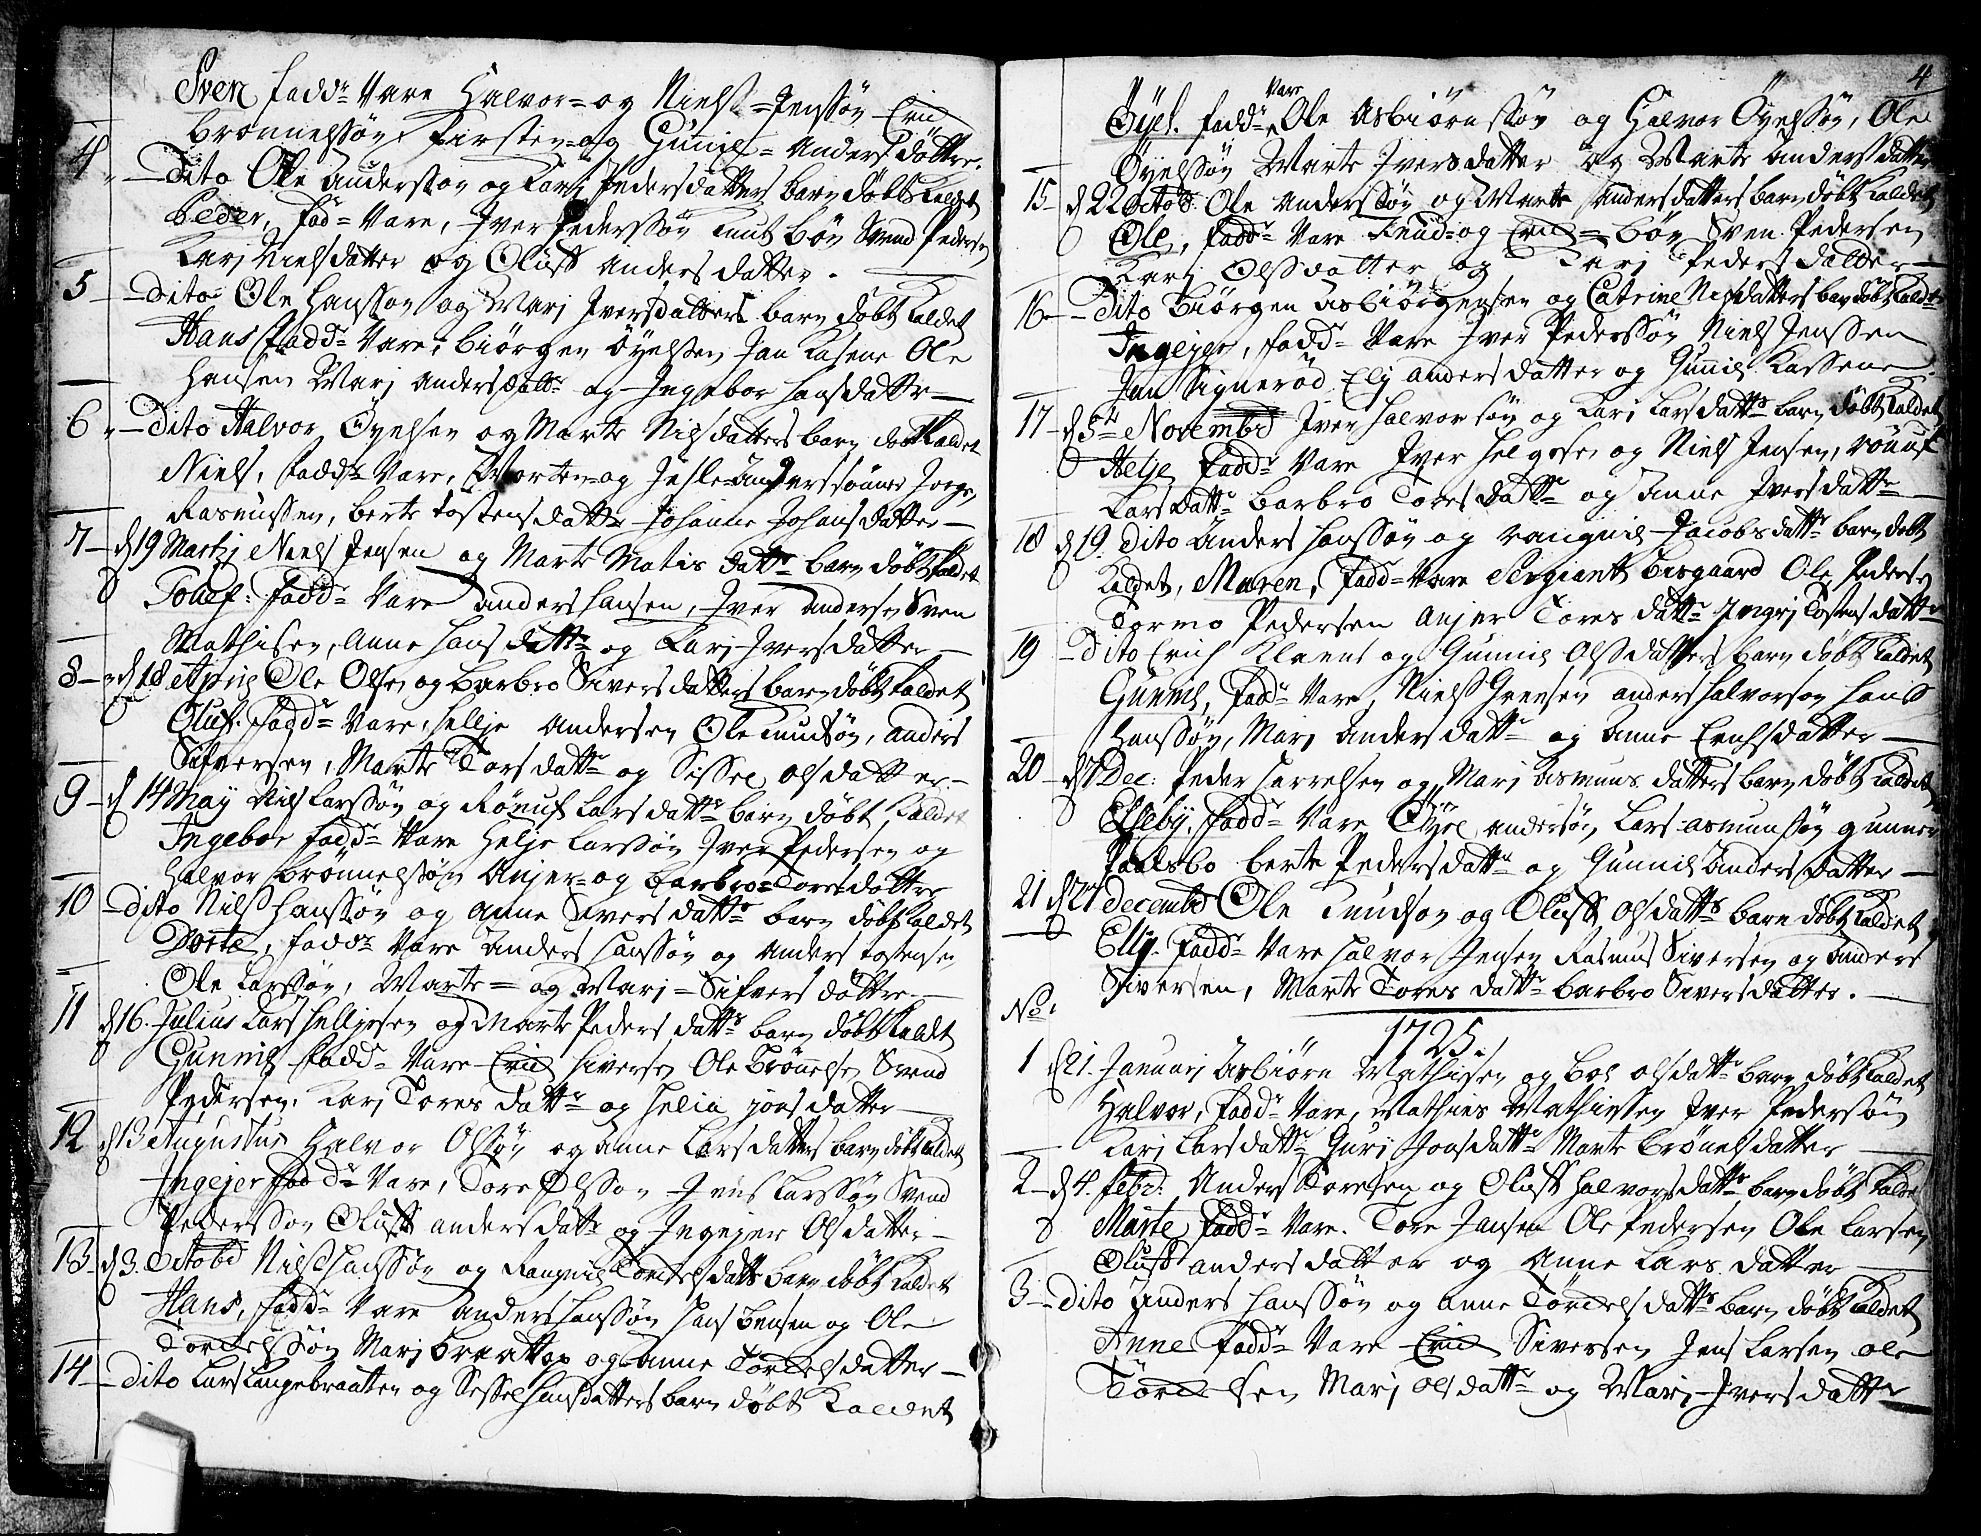 Sven fadd: Vare Halvor= og Niels=Jenssøn Erich
Brønnelssøn Kirsten= og Gunnil= Anders döttre.
4 – Dito Ole Anderssøn og Kari Pedersdatters barn döbt Kaldet
Peder, fad: Vare, Iver Pederssøn Knut Bøn Svend Peders:
Kari Nielsdatter og Oluff Anders datter.
5 – Dito Ole Hanssøn og Mari Iversdatters barn döbt Kaldet
Hans fadd: Vare, Biörgen Öyelsen Jan Kasene Ole
Hansen Mari Anders datt: og Ingebor Hansdatter –
6 – Dito Halvor Öyelsen og Marte Nilsdatters barn döbt Kaldet
Niels, fadd: Vare, Morten= og Jesle=Anderssönner Jorgen
Rasmussen, Berte Tostens datt: Johanne Johans datter –
7 – d 19 Martij Niels Jensen og Marte Matis datt: barn döbt Kaldet
Tollef: fadd: Vare Anders Hansen, Iver Anderse Sven
Mathisen, Anne Hans datt: og Kari Iversdatter –
8 – d 18 April Ole Olsen og Barbro Sivers datters barn döbt Kaldet
Oluf. fadd: Vare, Hellje Andersen Ole Knudsøn, Anders
Sifversen, Marte Torsdatt: og Sissel Olsdatter –
9 – d 14 May Nils Larssøn og Rönnf Lars datt: barn döbt Kaldet
Ingebor fadd: Vare Helje Larssøn Iver Pedersen og
Halvor Brönnelssøn Anjer= og Barbro=Tores döttre
10 – dito Nils Hanssøn og Anne Sivers datt: barn döbt Kaldet
Dorte, fadd: Vare Anders Hanssøn og Anders Tostensen
Ole Larssøn, Marte= og Mari=Sifvers döttre –
11 d 16. Julius Lars Helljesen og Marte Peders datt: barn döbt Kaldt
Gunnil fadd: Vare Erich Siversen Ole Brönelsen Svend
Pedersen, Kari Tores datt: og Helia Jons datter –
12 d 13 Augustus Halvor Olssøn og Anne Lars datters barn döbt Kaldet
Ingejer fadd: Vare, Tore Olsson Jens Larssøn Svend
Pederssøn Oluff Anders datt: og Ingejer Olsdatter –
13 – d 3. Octobd Nils Hanssøn og Rangnil Tordels datts barn döbt Kaldet
Hans, fadd: Vare Anders Hanssøn Hans Bensen og Ole
Tordelssøn Mari Braattop og Anne Tordels datter –
14 – dito Lars Langebraatten og Sessel Hansdatters barn döbt Kaldet
4
Öyel. fadd: Vare Ole Asbiörnssøn og Halvor Öyelssøn, Ole
Öyelssøn Marte Iversdatter og Marte Anders datter
15 – d 22 Octob: Ole Anderssøn og Marte Anders datters barn döbt Kaldet
Ole, fadd: Vare Knud= og Erich= Bøn Sven Pedersen
Kari Olssdatter og Kari Peders datter –
16 – Dito Biörgen Asbiörgensen og Catrine Nilsdatters barn döbt Kaldt
Ingejer, fadd: Vare Iver Pederssøn Niels Jenssen
Jan Signeröd Elj Anders datter og Gunnil Kassene.
17 – d 5te Novembd Iver Halvorssøn og Kari Lars datts barn döbt Kaldet
Helje fadd: Vare Iver Helgesen og Niels Jensen, Rönnf
Lars datt: Barbro Tores datt: og Anne Ivers datt: –
18 d 19. Dito Anders Hanssøn og Rangnil Jacobs datt: barn döbt
Kaldet, Maren, fadd: Vare Sergiant Bisgaard Ole Pederse
Tormo Pedersen Anjer Tores datt: Ingri Tostens datt:
19 – Dito Erich Klaent og Gunnil Olssdatters barn döbt Kaldet
Gunnil, fadd: Vare, Niels Jensen Anders Halvorsøn Hans
Hanssøn, Mari Anders datt: og Anne Erichsdatter –
20 – d 7 Dec: Peder Harrelsen og Mari Asmuns datters barn döbt Kaldet
Elseby, fadd: Vare Öyel Andersøn, Lars Asmunssøn Gunner
Paalsbo Berte Peders datt: og Gunnil Anders datter –
21 d 27 Decembd Ole Knudsøn og Oluff Ols datts barn döbt Kaldet
Elly. fadd: Vare Halvor Jensen Rasmus Siversen og Anders
Siversen, Marte Tores datt: Barbro Sivers datter. –
No:
1725.
1 d 21. Januarj Asbiörn Mathisen og Bol Olsdatt: barn döbt Kaldet
Halvor, fadd: Vare, Mathies Mathiessen Iver Pederssøn
Kari Larsdatt: Guri Jonsdatt: Marte Brönels datter –
2 – d 4. febr: Anders Toresen og Oluff Halvors datt: barn döbt Kaldet
Marte, fadd: Vare. Tore Jansen Ole Pedersen Ole Larsen
Oluff Anders datter og Anne Lars datter –
3 – dito Anders Hanssøn og Anne Tordels datts barn döbt Kaldet
Anne fadd: Vare Erich Siversen Jens Larsen Ole
Tordelsen Mari Olsdatt: og Mari Iversdatt: –